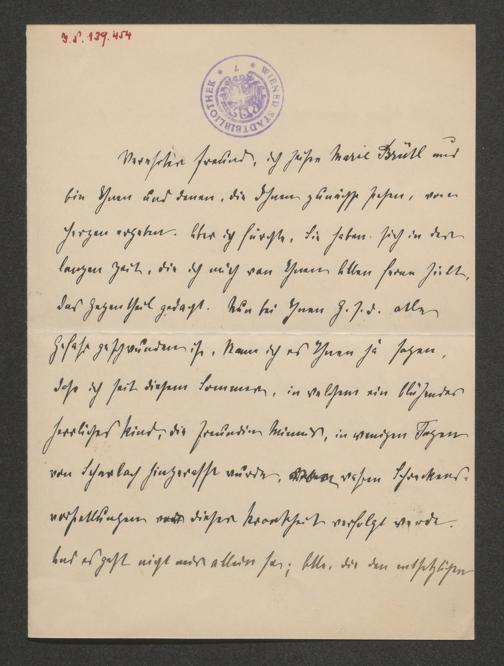 I. N. 139.454
WIENER STADTBIBLIOTHEK
Verehrter Freund, ich heiße Marie Brüll und
bin Ihnen und denen, die Ihnen zunächst stehen, von
Herzen ergeben. Aber ich fürchte, Sie haben sich in der
langen Zeit, die ich mich von Ihnen Allen ferne hielt,
das Gegentheil gedacht. Nun bei Ihnen G. s. d. alle
Gefahr geschwunden ist, kann ich es Ihnen ja sagen,
daß ich seit diesem Sommer, in welchem ein blühendes
herrliches Kind, die Freundin Minnis, in wenigen Tagen
von Scharlach hingerafft wurde, von wahren Schreckens-
vorstellungen dieser Krankheit verfolgt werde.
Und es geht nicht mir allein so; Alle, die den entsetzlichen